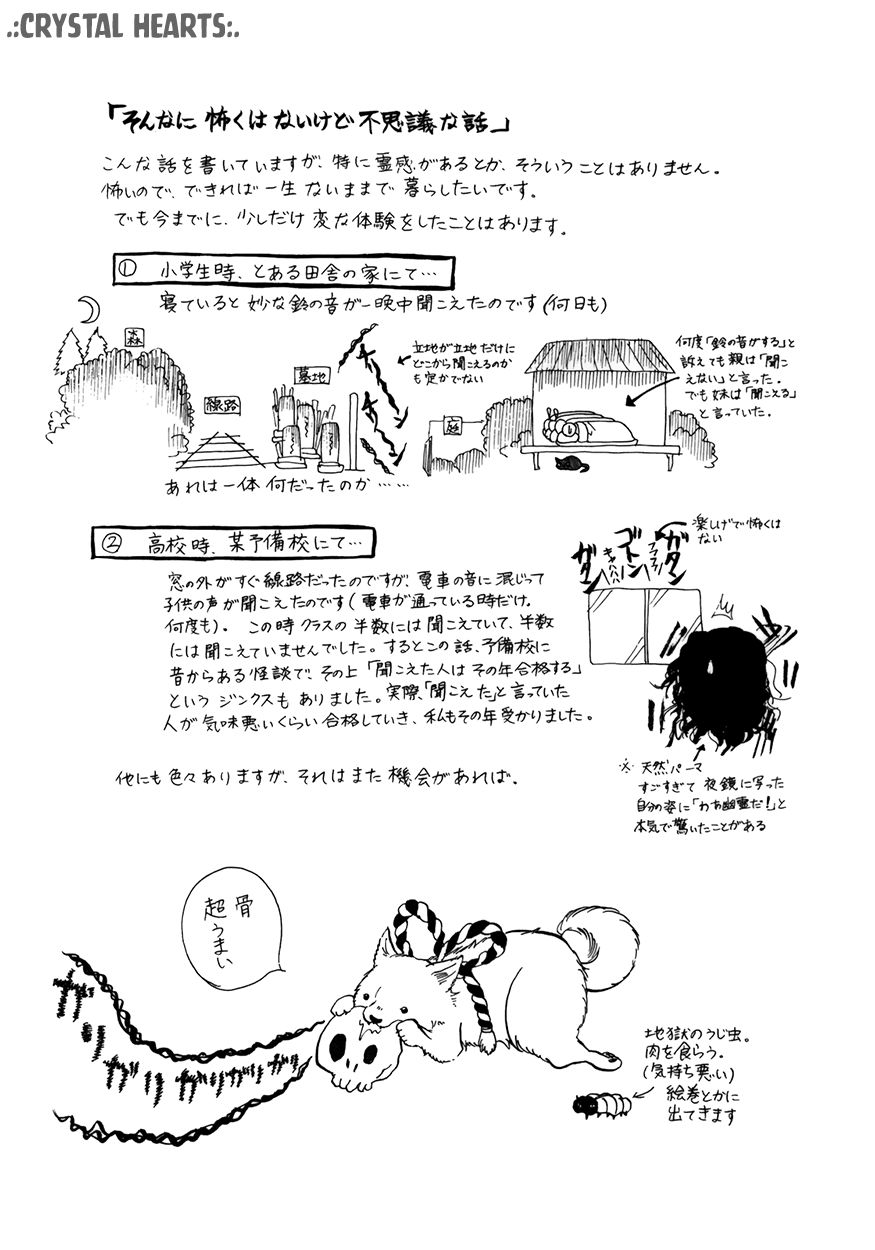 .:CRYSTAL HEARTS:.
「そんなに怖くはないけど不思議な話」
こんな話を書いていますが、特に霊感があるとか、そういうことはありません。
怖いので、できれば一生ないままで暮らしたいです。
でも今までに、少しだけ変な体験をしたことはあります。
① 小学生時、とある田舎の家にて…
寝ていると妙な鈴の音が一晩中聞こえたのです(何日も)
森
線路
墓地
チリーン
チリーン
立地が立地だけに
どこから聞こえるのか
も定かでない
庭
何度「鈴の音がする」と
訴えても親は「聞こ
えない」と言った。
でも妹は「聞こえる」
と言っていた。
あれは一体何だったのか……
② 高校時、某予備校にて…
窓の外がすぐ線路だったのですが、電車の音に混じって
子供の声が聞こえたのです(電車が通っている時だけ。
何度も)。この時クラスの半数には聞こえていて、半数
には聞こえていませんでした。するとこの話、予備校に
昔からある怪談で、その上「聞こえた人はその年合格する」
というジンクスもありました。実際、「聞こえた」と言っていた
人が気味悪いくらい合格していき、私もその年受かりました。
楽しげで怖くは
ない
ガタン
フフフ
ゴトン
キャハハハ
ガタン
※ 天然パーマ
すごすぎて夜鏡に写った
自分の姿に「わあ幽霊だ!」と
本気で驚いたことがある
他にも色々ありますが、それはまた機会があれば。
骨
超うまい
地獄のうじ虫。
肉を食らう。
(気持ち悪い)
絵巻とかに
出てきます